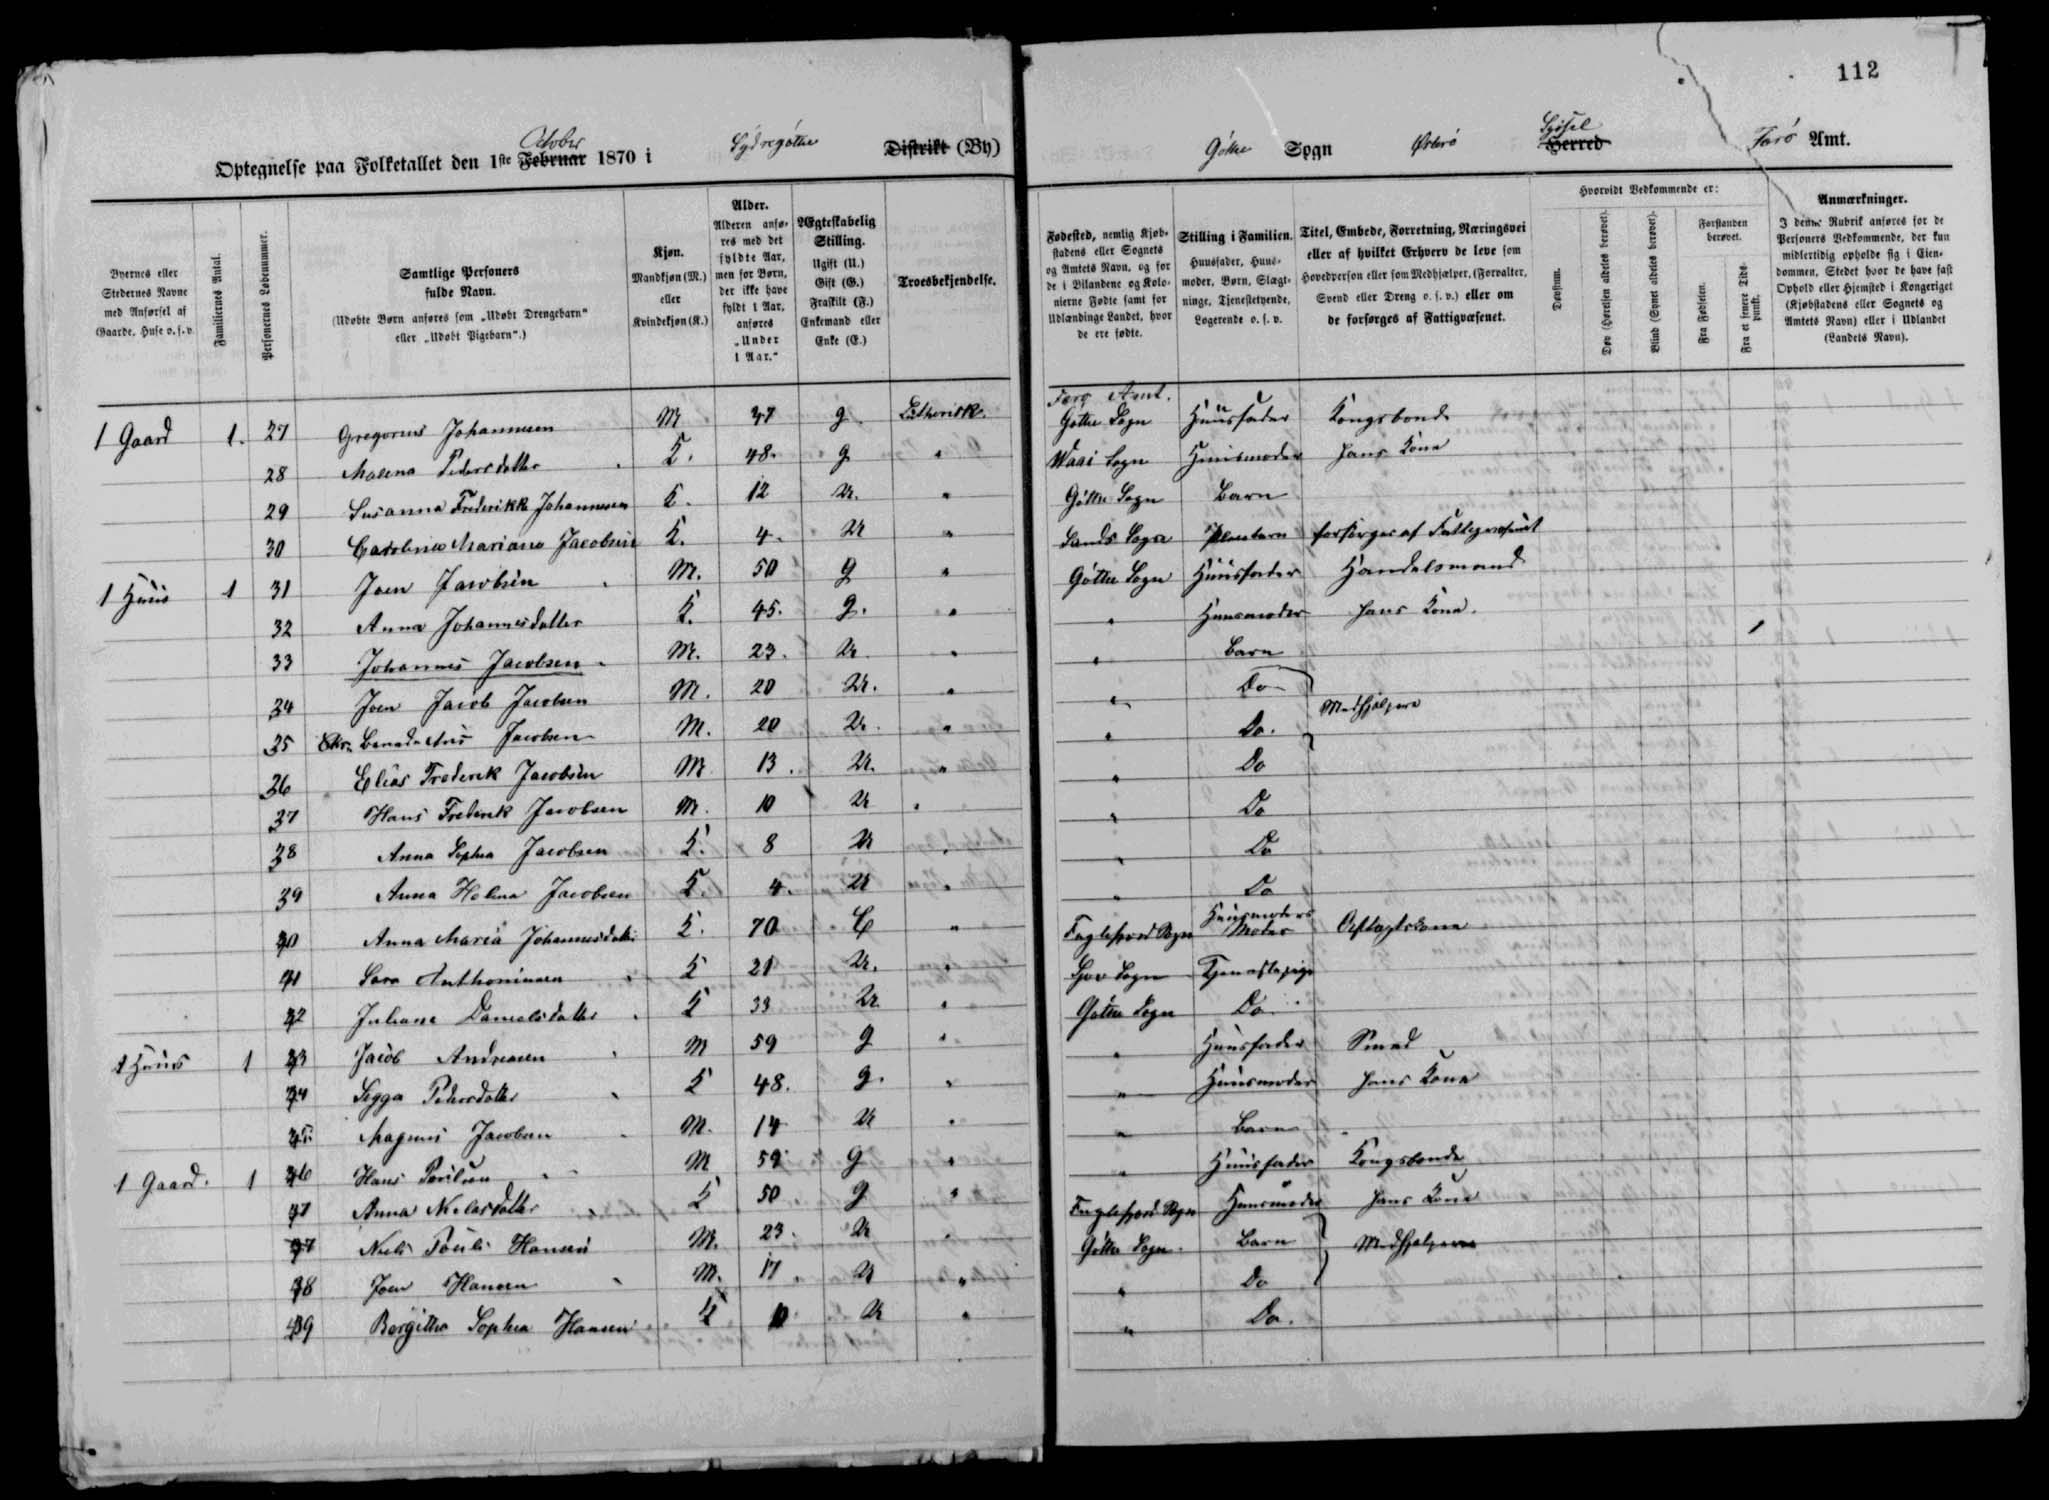 112
Optegnelse paa Folketallet den 1ste October Februar 1870 i Sydregøthe Distrikt (By)
Gøthe Sogn Østerø Syssel Herred Færø Amt.
Byernes eller Stedernes Navne med Anførsel af Gaarde, Huse o. s. v.
Familiernes Antal.
Personernes Løbenummer.
Samtlige Personers fulde Navn. (Udøbte Børn anføres som „Udøbt Drengebarn“ eller „Udøbt Pigebarn“.)
Kjøn. Mandkjøn (M.) eller Kvindekjøn (K.)
Alder. Alderen anføres med det fyldte Aar, men for Børn, der ikke have fyldt 1 Aar, anføres „Under 1 Aar.“
Ægteskabelig Stilling. Ugift (U.) Gift (G.) Fraskilt (F.) Enkemand eller Enke (E.)
Troesbekjendelse.
Fødested, nemlig Kjøbstadens eller Sognets og Amtets Navn, og for de i Bilandene og Kolonierne Fødte samt for Udlændinge Landet, hvor de ere fødte.
Stilling i Familien. Huusfader, Huusmoder, Børn, Slægtninge, Tjenestetyende, Logerende o. s. v.
Titel, Embede, Forretning, Næringsvei eller af hvilket Erhverv de leve som Hovedperson eller som Medhjælper, (Forvalter, Svend eller Dreng o. s. v.) eller om de forsørges af Fattigvæsenet.
Hvorvidt Vedkommende er:
Døvstum.
Døv (Hørelsen aldeles berøvet).
Blind (Synet aldeles berøvet).
Forstanden berøvet.
Fra Fødselen.
Fra et senere Tidspunkt.
Anmærkninger. I denne Rubrik anføres for de Personers Vedkommende, der kun midlertidig opholde sig i Eiendommen, Stedet hvor de have fast Ophold eller Hjemsted i Kongeriget (Kjøbstadens eller Sognets og Amtets Navn) eller i Udlandet (Landets Navn).
Færø Amt.
1 Gaard 1. 27 Gregorius Johannesen M 47 g Lutherisk Gøthe Sogn Huusfader Kongsbonde
28 Malena Pedersdatter K. 48. g " Waai Sogn Huusmoder hans Kone
29 Susanna Frederikke Johannesen K. 12 U. " Gøthe Sogn Barn
30 Carolina Mariane Jacobsen K. 4. U " Sands Sogn Pleiebarn forsørges af Fattigvæsenet
1 Huus 1 31 Joen Jacobsen M. 50 g " Gøthe Sogn Huusfader Handelsmand
32 Anna Johannesdatter K. 45. g. " " Huusmoder hans Kone.
33 Johannes Jacobsen M. 23. U " " Barn 1
34 Joen Jacob Jacobsen M. 20 U. " " Do Medhjælpere
35 Chr. Benedictus Jacobsen M. 20 U. " " Do.
36 Elias Frederik Jacobsen M 13. U. " " Do
37 Hans Frederik Jacobsen M. 10 U " " Do
38 Anna Sophia Jacobsen K. 8 U " " Do
39 Anna Helena Jacobsen K. 4. U " " Do
40 Anna Maria Johannesdatter K. 70 E " Fuglefjord Sogn Huusmoders Moder Aftægtskone
41 Sara Anthoniusen K 21 U. " Sjov Sogn Tjenestepige
42 Juliane Danielsdatter K 33 U. " Gøthe Sogn Do
1 Huus 1 43 Jacob Andreasen M 59 g " " Huusfader Smed
44 Sigga Pedersdatter K 48. g. " " Huusmoder hans Kone
45 Magnus Jacobsen M. 14 U " " Barn
1 Gaard. 1 46 Hans Poulsen M 59 g " " Huusfader Kongsbonde
47 Anna Nielsdatter K 50 g " Fuglefjord Sogn Huusmoder hans Kone
47 Niels Pauli Hansen M. 23. U " Gøthe Sogn Barn Medhjælpere
48 Joen Hansen M. 17. U " " Do
49 Bergithe Sophia Hansen K 10 U " " Do.